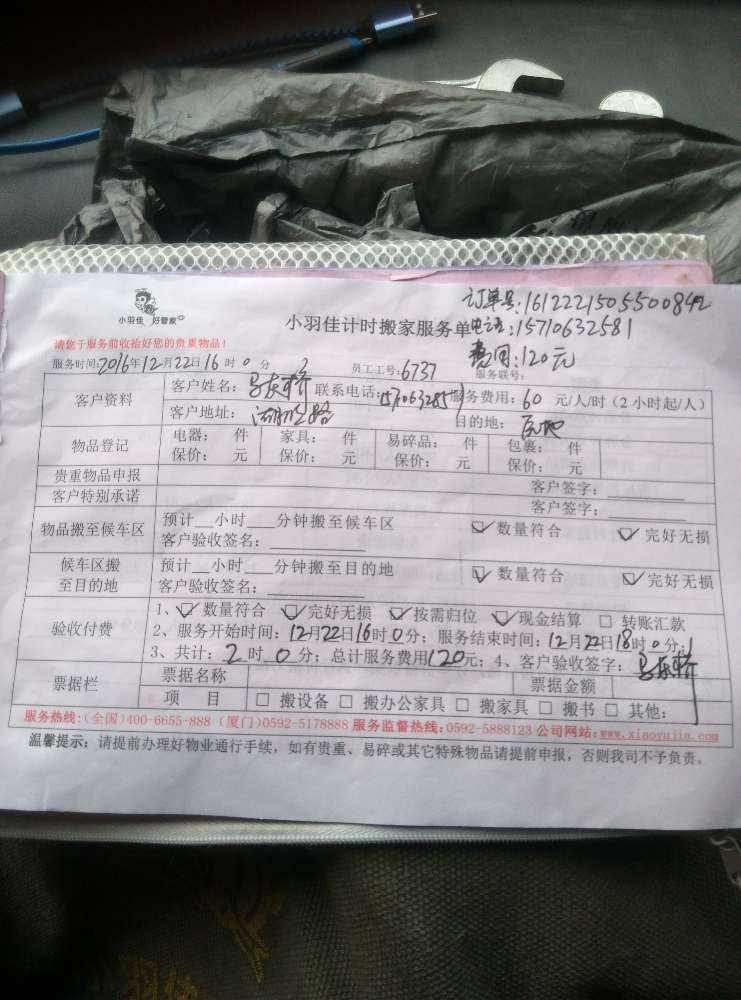 订单号:1612221505500842
小羽佳 好管家
小羽佳计时搬家服务单
电话:15710632581
请您于服务前收拾好您的贵重物品!
费用:120元
服务时间:2016年12月22日16时0分
员工工号:6737
服务联号:
客户资料
客户姓名: 联系电话: 服务费用:60 元/人/时(2小时起/人)
客户地址: 湖 路 目的地:
物品登记
电器: 件 家具: 件 易碎品: 件 包裹: 件
保价: 元 保价: 元 保价: 元 保价: 元
贵重物品申报 客户签字:
客户特别承诺 客户签字:
物品搬至候车区
预计__小时___分钟搬至候车区 ☑ 数量符合 ☑ 完好无损
客户验收签名:
候车区搬至目的地
预计__小时___分钟搬至目的地 ☑ 数量符合 ☑ 完好无损
客户验收签名:
验收付费
1、☑ 数量符合 ☑ 完好无损 ☑ 按需归位 ☑ 现金结算 □ 转账汇款
2、服务开始时间:12月22日16时0分; 服务结束时间:12月22日18时0分;
3、共计:2时0分; 总计服务费用120元; 4、客户验收签字:
票据栏
票据名称 票据金额
项 目 □ 搬设备 □ 搬办公家具 □ 搬家具 □ 搬书 □ 其他:
服务热线:(全国)400-6655-888 (厦门)0592-5178888 服务监督热线:0592-5888123 公司网站:www.xiaoyujia.com
温馨提示: 请提前办理好物业通行手续,如有贵重、易碎或其它特殊物品请提前申报,否则我司不予负责。